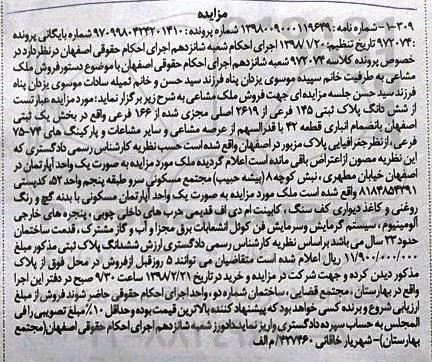 مزایده
۳۰۹-۱- شماره نامه: ۱۳۹۸۰۰۹۰۰۰۱۱۹۶۴۹ شماره پرونده: ۹۷۰۹۹۸۰۴۲۴۲۰۱۴۱۰ شماره بایگانی پرونده
:۹۷۲۰۷۴ تاریخ تنظیم: ۱۳۹۸/۱/۲۰ اجرای احکام شعبه شانزدهم اجرای احکام حقوقی اصفهان درنظر دارد در
خصوص پرونده کلاسه ۹۷۲۰۷۴ شعبه شانزدهم اجرای احکام حقوقی اصفهان با موضوع دستور فروش ملک
مشاعی به طرفیت خانم سپیده موسوی یزدان پناه فرزند سید حسن و خانم ثمیله سادات موسوی یزدان پناه
فرزند سید حسن جلسه مزایده ای جهت فروش ملک مشاعی به شرح زیر برگزار نماید: مورد مزایده عبارتست
از شش دانگ پلاک ثبتی ۱۴۵ فرعی از ۲۶۱۹ اصلی مجزی شده از ۱۶۶ فرعی واقع در بخش یک ثبتی
اصفهان بانضمام انباری قطعه ۴۲ با قدرالسهم از عرصه مشاعی و سایر مشاعات و پارکینگ های ۷۴-۷۵
فرعی، از نظر جغرافیایی پلاک مزبور در اصفهان واقع شده است حسب نظریه کارشناس رسمی دادگستری که
این نظریه مصون از اعتراض باقی مانده است اعلام گردیده ملک مورد مزایده به صورت یک واحد آپارتمان در
اصفهان خیابان مطهری، نبش کوچه ۸ (بیشه حبیب) مجتمع مسکونی سرو طبقه پنجم واحد ۵۲، کدپستی
۸۱۸۴۸۵۴۳۹۱ واقع شده است ملک مورد مزایده به صورت یک واحد آپارتمان مسکونی با بدنه گچ و رنگ
روغنی و کاغذ دیواری کف سنگ، کابینت ام دی اف قدیمی درب های داخلی چوبی، پنجره های خارجی
آلومینیوم، سیستم گرمایش و سرمایش فن کوئل انشعابات برق مجزا و آب و گاز مشترک، قدمت ساختمان
حدود ۲۳ سال می باشد براساس نظریه کارشناس رسمی دادگستری ارزش ششدانگ پلاک ثبتی مذکور مبلغ
۱۱/۹۰۰/۰۰۰/۰۰۰ ریال اعلام شده است متقاضیان می توانند ۵ روز قبل از فروش در محل فوق از پلاک
مذکور دیدن کرده و جهت شرکت در مزایده و خرید در تاریخ ۱۳۹۸/۲/۲۱ ساعت ۹/۳۰ صبح در دفتر این اجرا
واقع در بهارستان، مجتمع قضایی، ساختمان شماره دو، واحد اجرای احکام حقوقی حاضر شوند فروش از مبلغ
ارزیابی شروع و برنده کسی خواهد بود که پیشنهاد کننده بالاترین قیمت بوده و حداقل ۱۰٪ مبلغ تصویبی را فی
المجلس به حساب سپرده دادگستری واریز نماید. دادورز شعبه شانزدهم اجرای احکام حقوقی اصفهان (مجتمع
بهارستان)- شهریار خاقانی ۴۳۷۴۶۰/ م الف